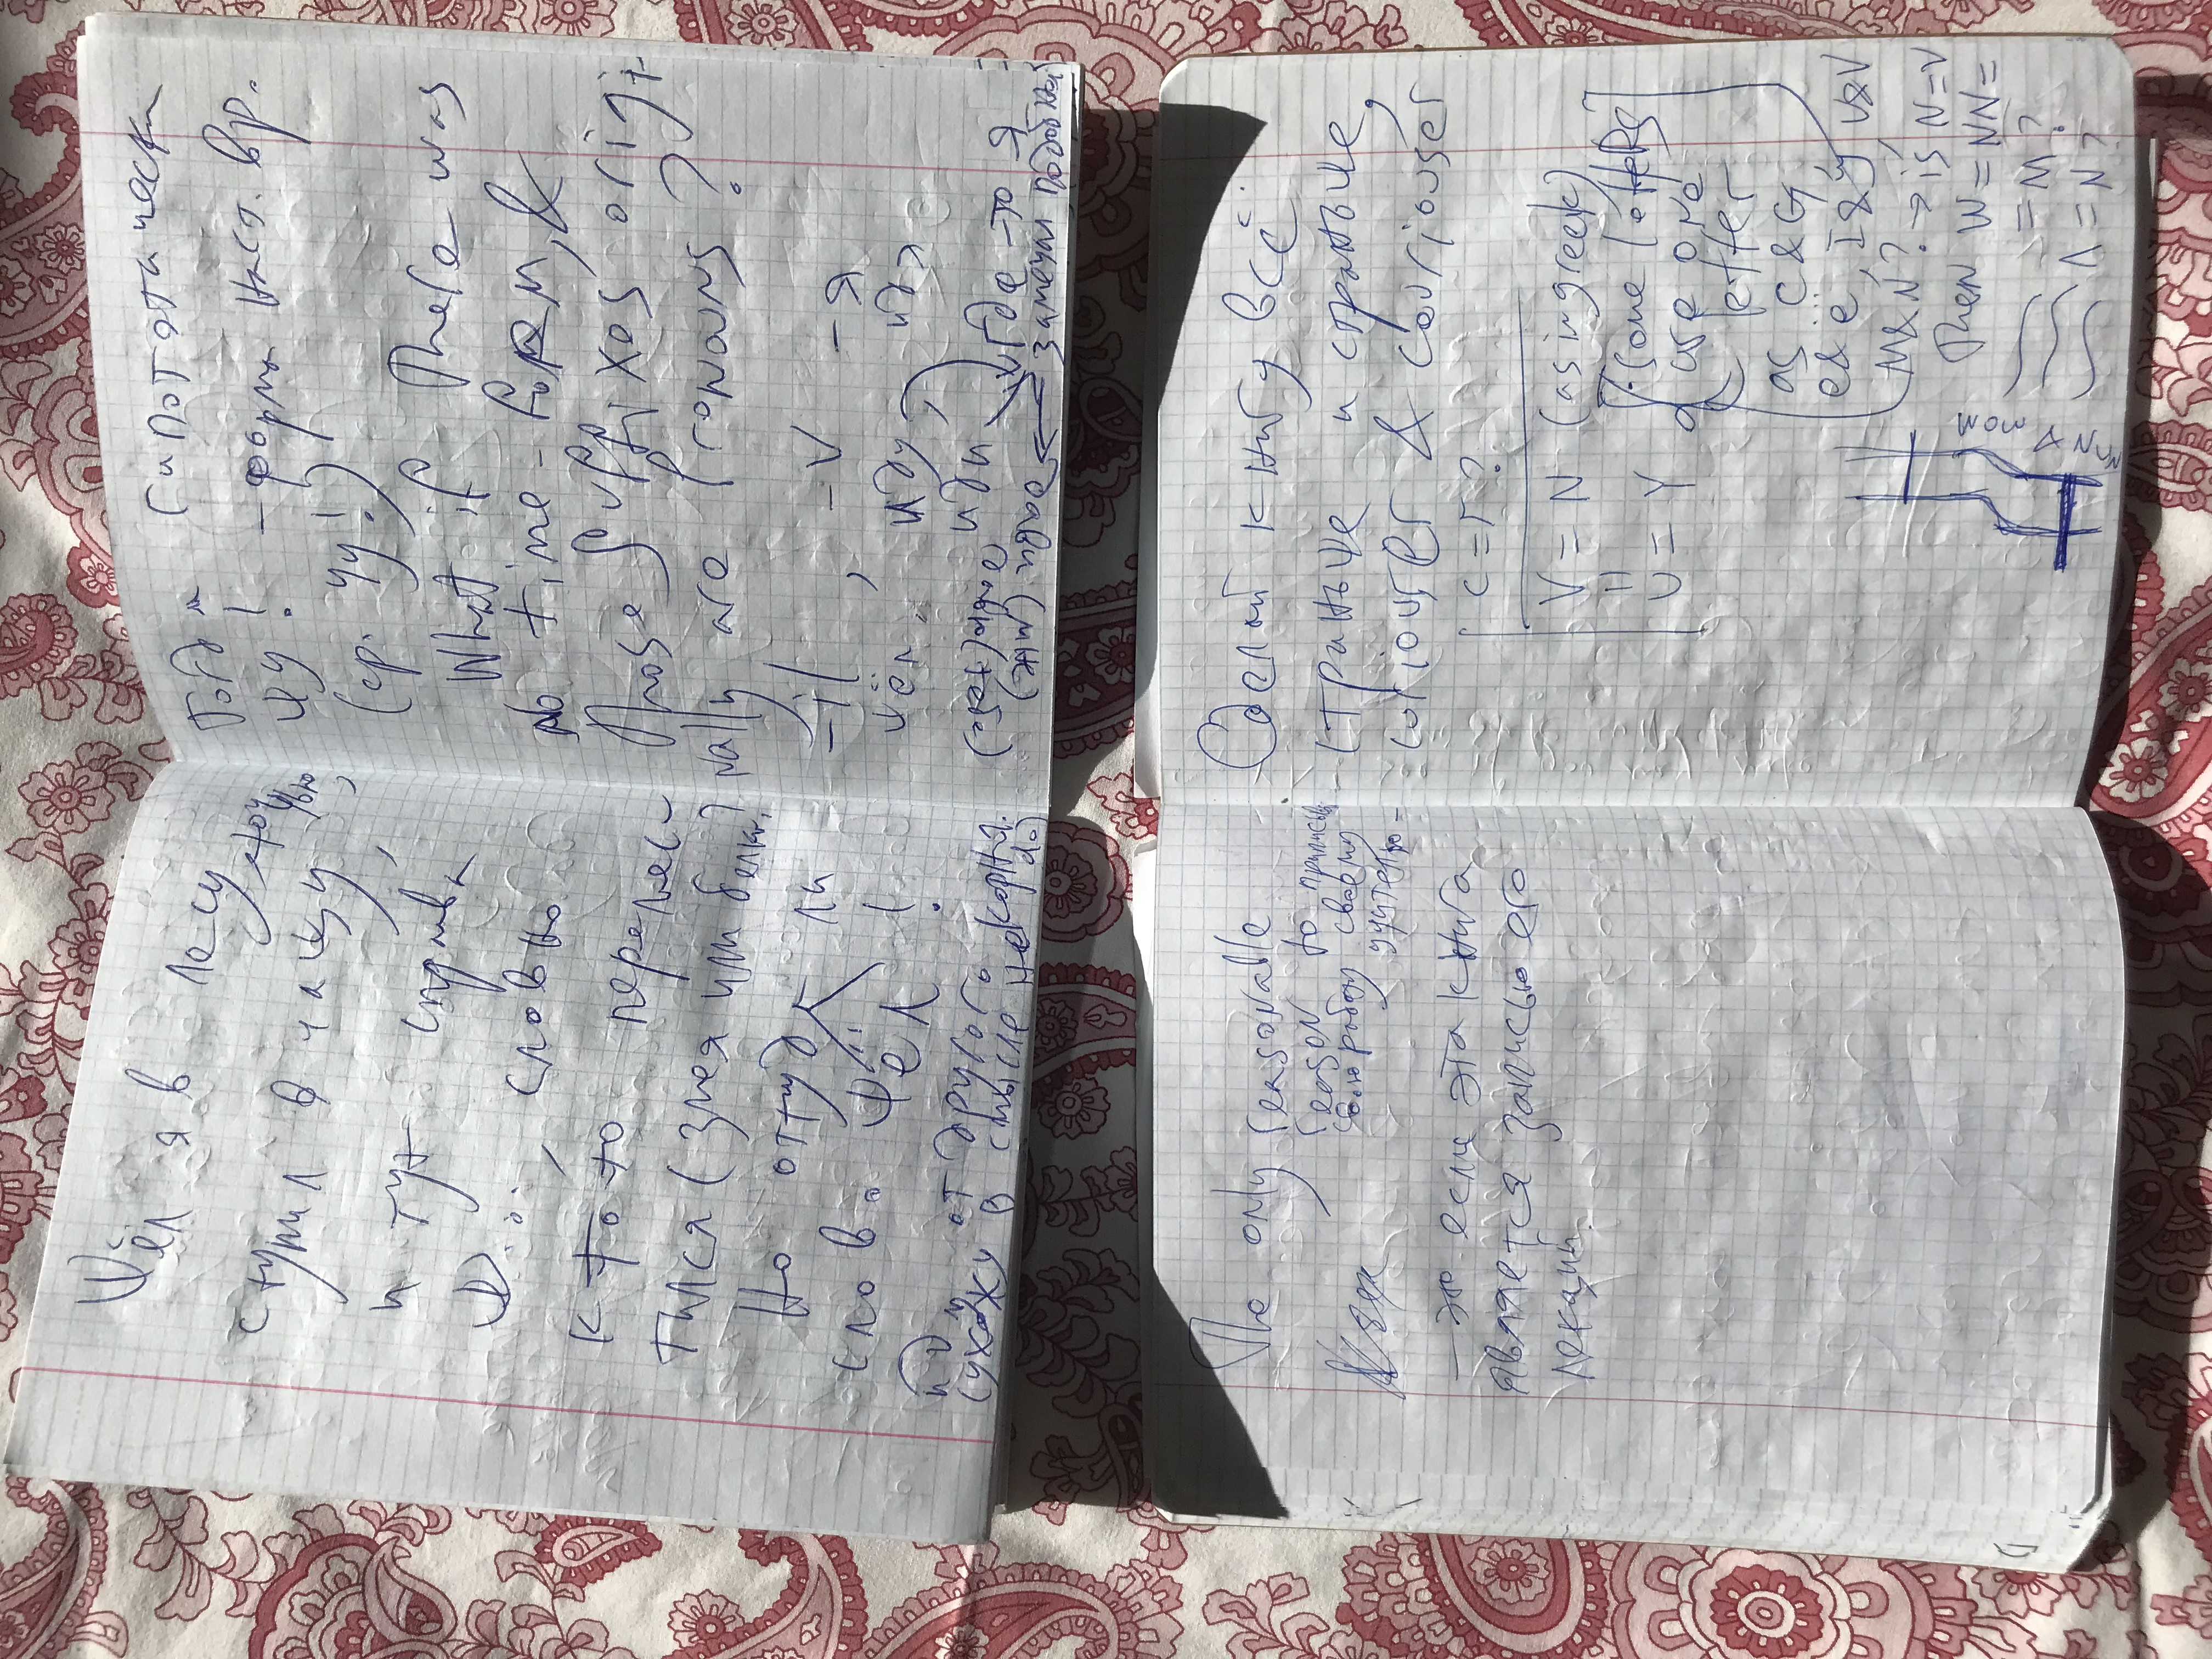 Ѱёл я в лесу
ступил в чащу ночью,
и тут справа
Ѱ..., словно
кто-то перемес-
тился (змея или белка?)
Но откуда ли
слово Ѱёл!
иду от другого корня.
(ухожу в смысле не до)
Тогда гипотэтически
ѱу! - форма наст. вр.
(ср. Чу!)
What if There was
No time-form, &
Those Suffixes origi-
nally are Pronouns?
-il, -V -я
ѱёл, иду, идя
иди
Где-то я
замечал подобные
давлю (тебе)
дави (мне)
The only reasonable
reason to приписыв
свою работу своему
учителю -
- это если эта книга
является записью его
лекций.
Сделай книгу всё
страньше и страньше,
curiouser & couriouser
C = Г?
V = N (as in greek)
=
U = Y
some letteRs
are one
letter
as C & G,
e & ë, I & y, U & V
M & N? → is N = V
Then W = NN =
= M?
Λ = N?
WOW